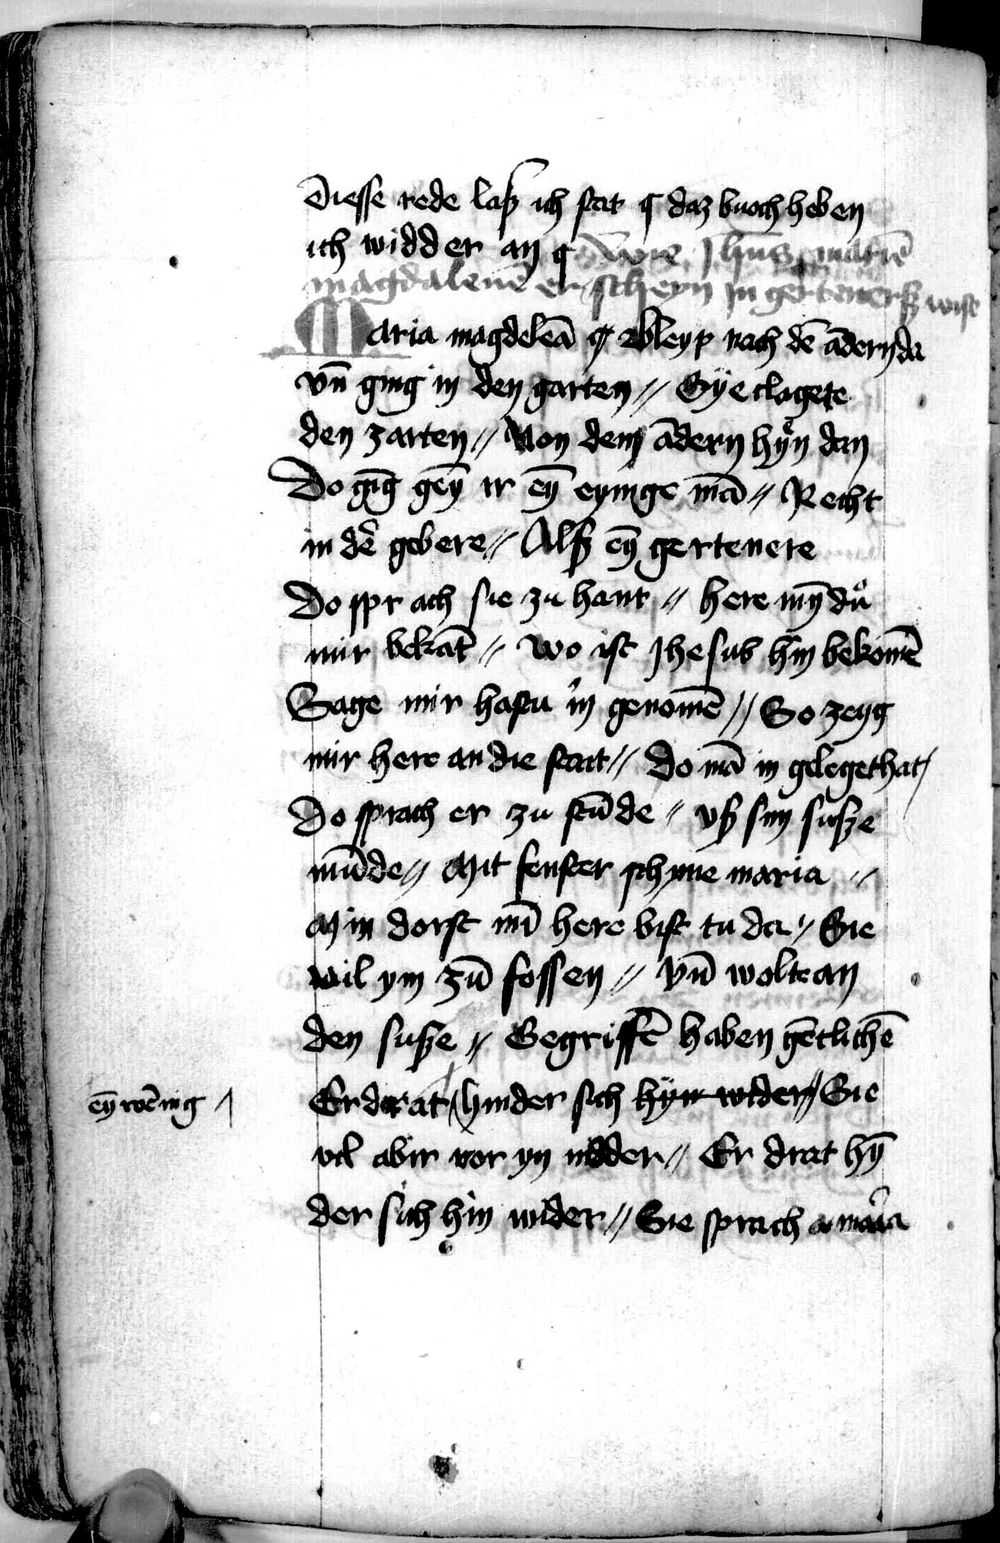 Diesse rede laß ich stat ¶ daz buoch heben
ich widder an ¶ Wie Jhūs marie
magdalenē er scheyn in gertenerß wise
Maria magdelēā ¶ bleyp nach dē ādern da
vn̄ ging in den garten // Sÿe clagete
den zarten // Von dem ādern hyn dan
Do gīg gēy ir eȳ eynige mā // Recht
in dē gebere // Alß eȳ gertenere
Do sprach sie zu hant // here mȳ dů
mir bekāt // wo ist Jhesus hin bekomē
Sage mir hastu in genomē // So zeyg
mir here an die stat // Do mā in geleget hat /
Do sprach er zu stūde // vß sin susze
mūde // Mit senfter schyne maria //
Min dorst mī here bist tu da // Sie
wil ym zū fossen // vn̄ wolte an
den susze // Begriffē haben gētlichē
Er drat hinder sich hÿn wider // Sie
eȳ wēing /
viel abir vor yn nidder // Er drat hȳ
der sich hin wider // Sie sprach a maria